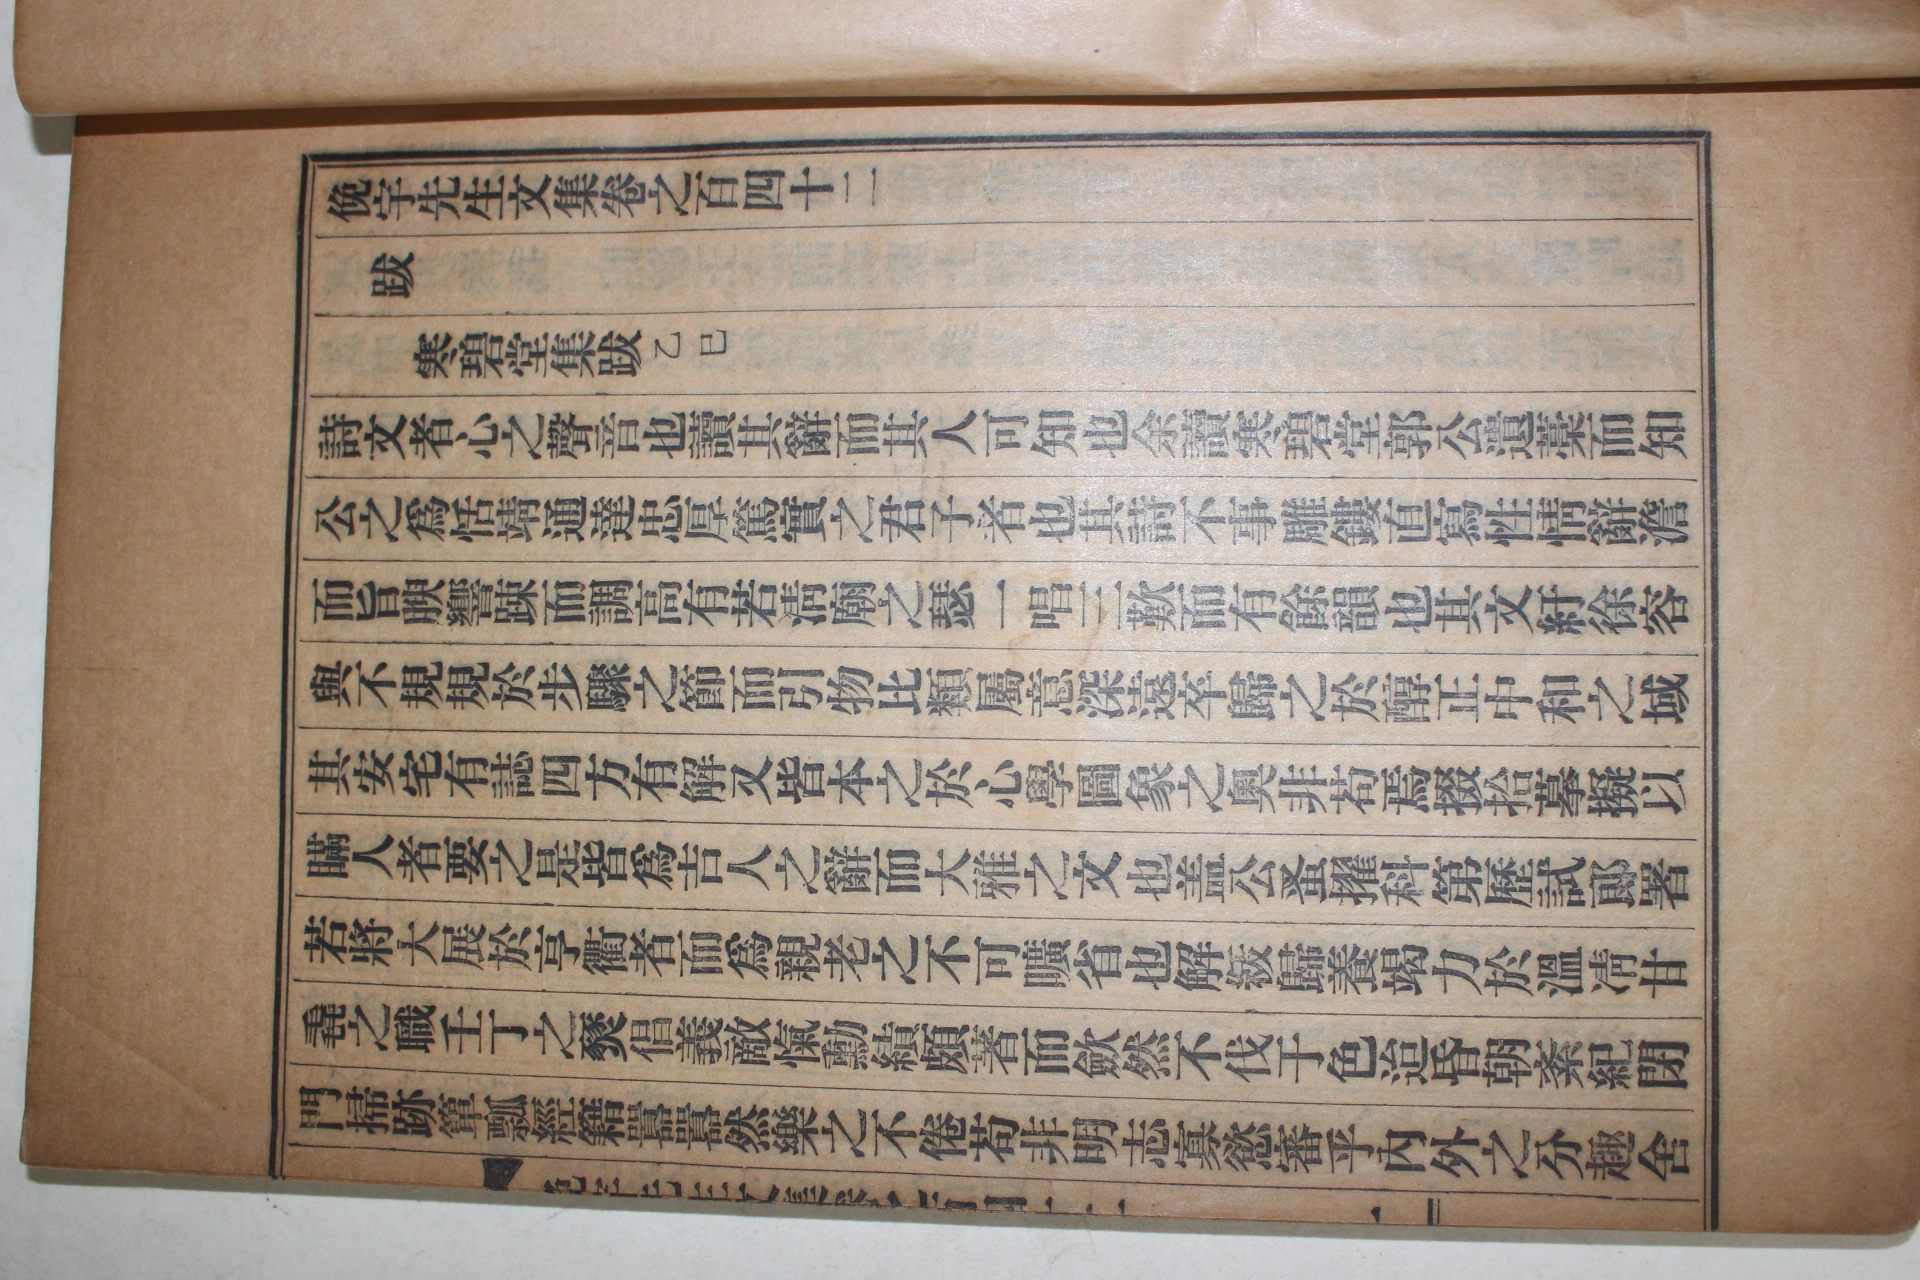 俛宇先生文集卷之百四十二
跋
寒碧堂集跋 乙巳
詩文者心之聲音也讀其辭而其人可知也余讀寒碧堂郭公遺藁而知
公之爲恬靖通達忠厚篤實之君子者也其詩不事雕鏤直寫性情辭澹
而旨腴響踈而調高有若淸廟之瑟一唱三歎而有餘韻也其文紆徐容
與不規規於步驟之節而引物比類屬意深遠卒歸之於醇正中和之域
其安宅有誌四方有解又皆本之於心學圖象之奧非苟焉掇拾摹擬以
瞞人者要之是皆爲吉人之辭而大雅之文也盖公蚤擢科第歷試郞署
若將大展於亨衢者而爲親老之不可曠省也解紱歸養竭力於溫凊甘
毳之職壬丁之燹倡義敵愾勳績頗著而歛然不伐于色迨昏朝紊紀閉
門掃跡簞瓢經籍囂囂然樂之不倦苟非明志寡慾審乎内外之分趣舍